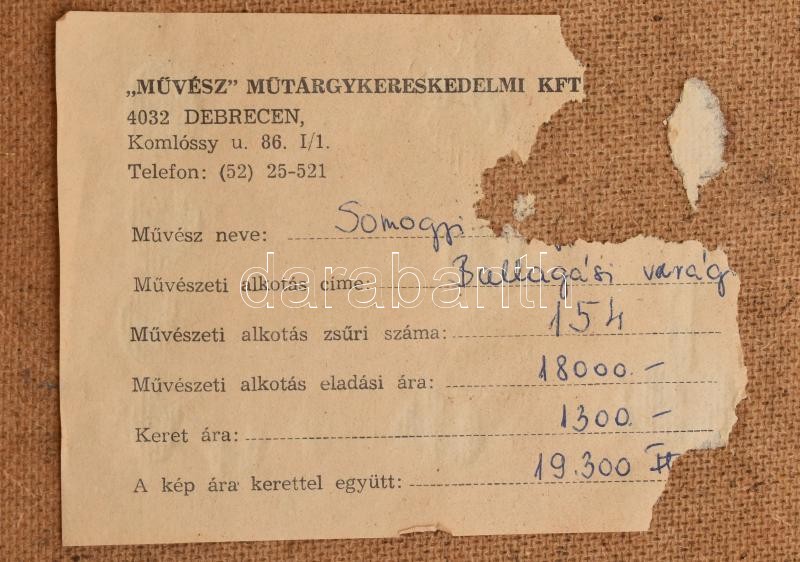 „MŰVÉSZ” MŰTÁRGYKERESKEDELMI KFT
4032 DEBRECEN,
Komlóssy u. 86. I/1.
Telefon: (52) 25-521
Művész neve: Somogyi
Művészeti alkotás címe: Ballagási virág
Művészeti alkotás zsűri száma: 154
Művészeti alkotás eladási ára: 18000.–
Keret ára: 1300.–
A kép ára kerettel együtt: 19.300 Ft
darabanth